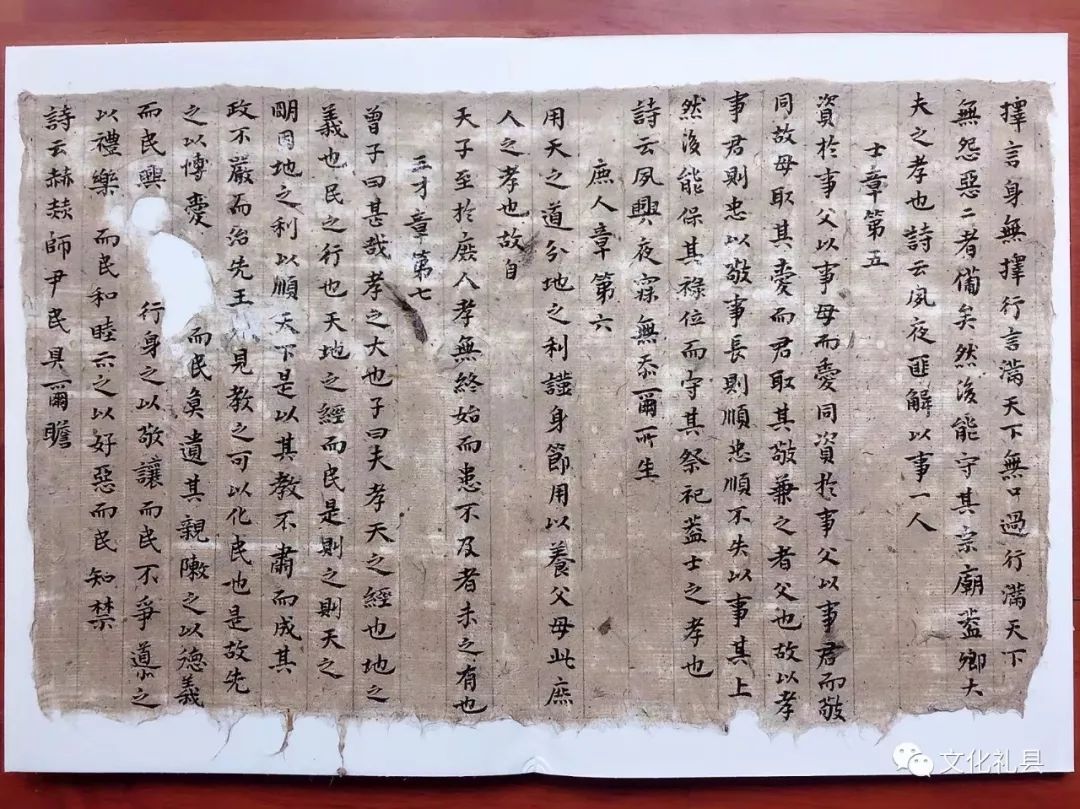 擇言身無擇行言滿天下無口過行滿天下
無怨惡二者備矣然後能守其宗廟蓋卿大
夫之孝也詩云夙夜匪解以事一人
士章第五
資於事父以事母而愛同資於事父以事君而敬
同故母取其愛而君取其敬兼之者父也故以孝
事君則忠以敬事長則順忠順不失以事其上
然後能保其祿位而守其祭祀蓋士之孝也
詩云夙興夜寐無忝爾所生
庶人章第六
用天之道分地之利謹身節用以養父母此庶
人之孝也故自
天子至於庶人孝無終始而患不及者未之有也
三才章第七
曾子曰甚哉孝之大也子曰夫孝天之經也地之
義也民之行也天地之經而民是則之則天之
明因地之利以順天下是以其教不肅而成其
政不嚴而治先王見教之可以化民也是故先
之以博愛而民莫遺其親陳之以德義
而民興行身之以敬讓而民不爭導之
以禮樂而民和睦示之以好惡而民知禁
詩云赫赫師尹民具爾瞻
文化礼县